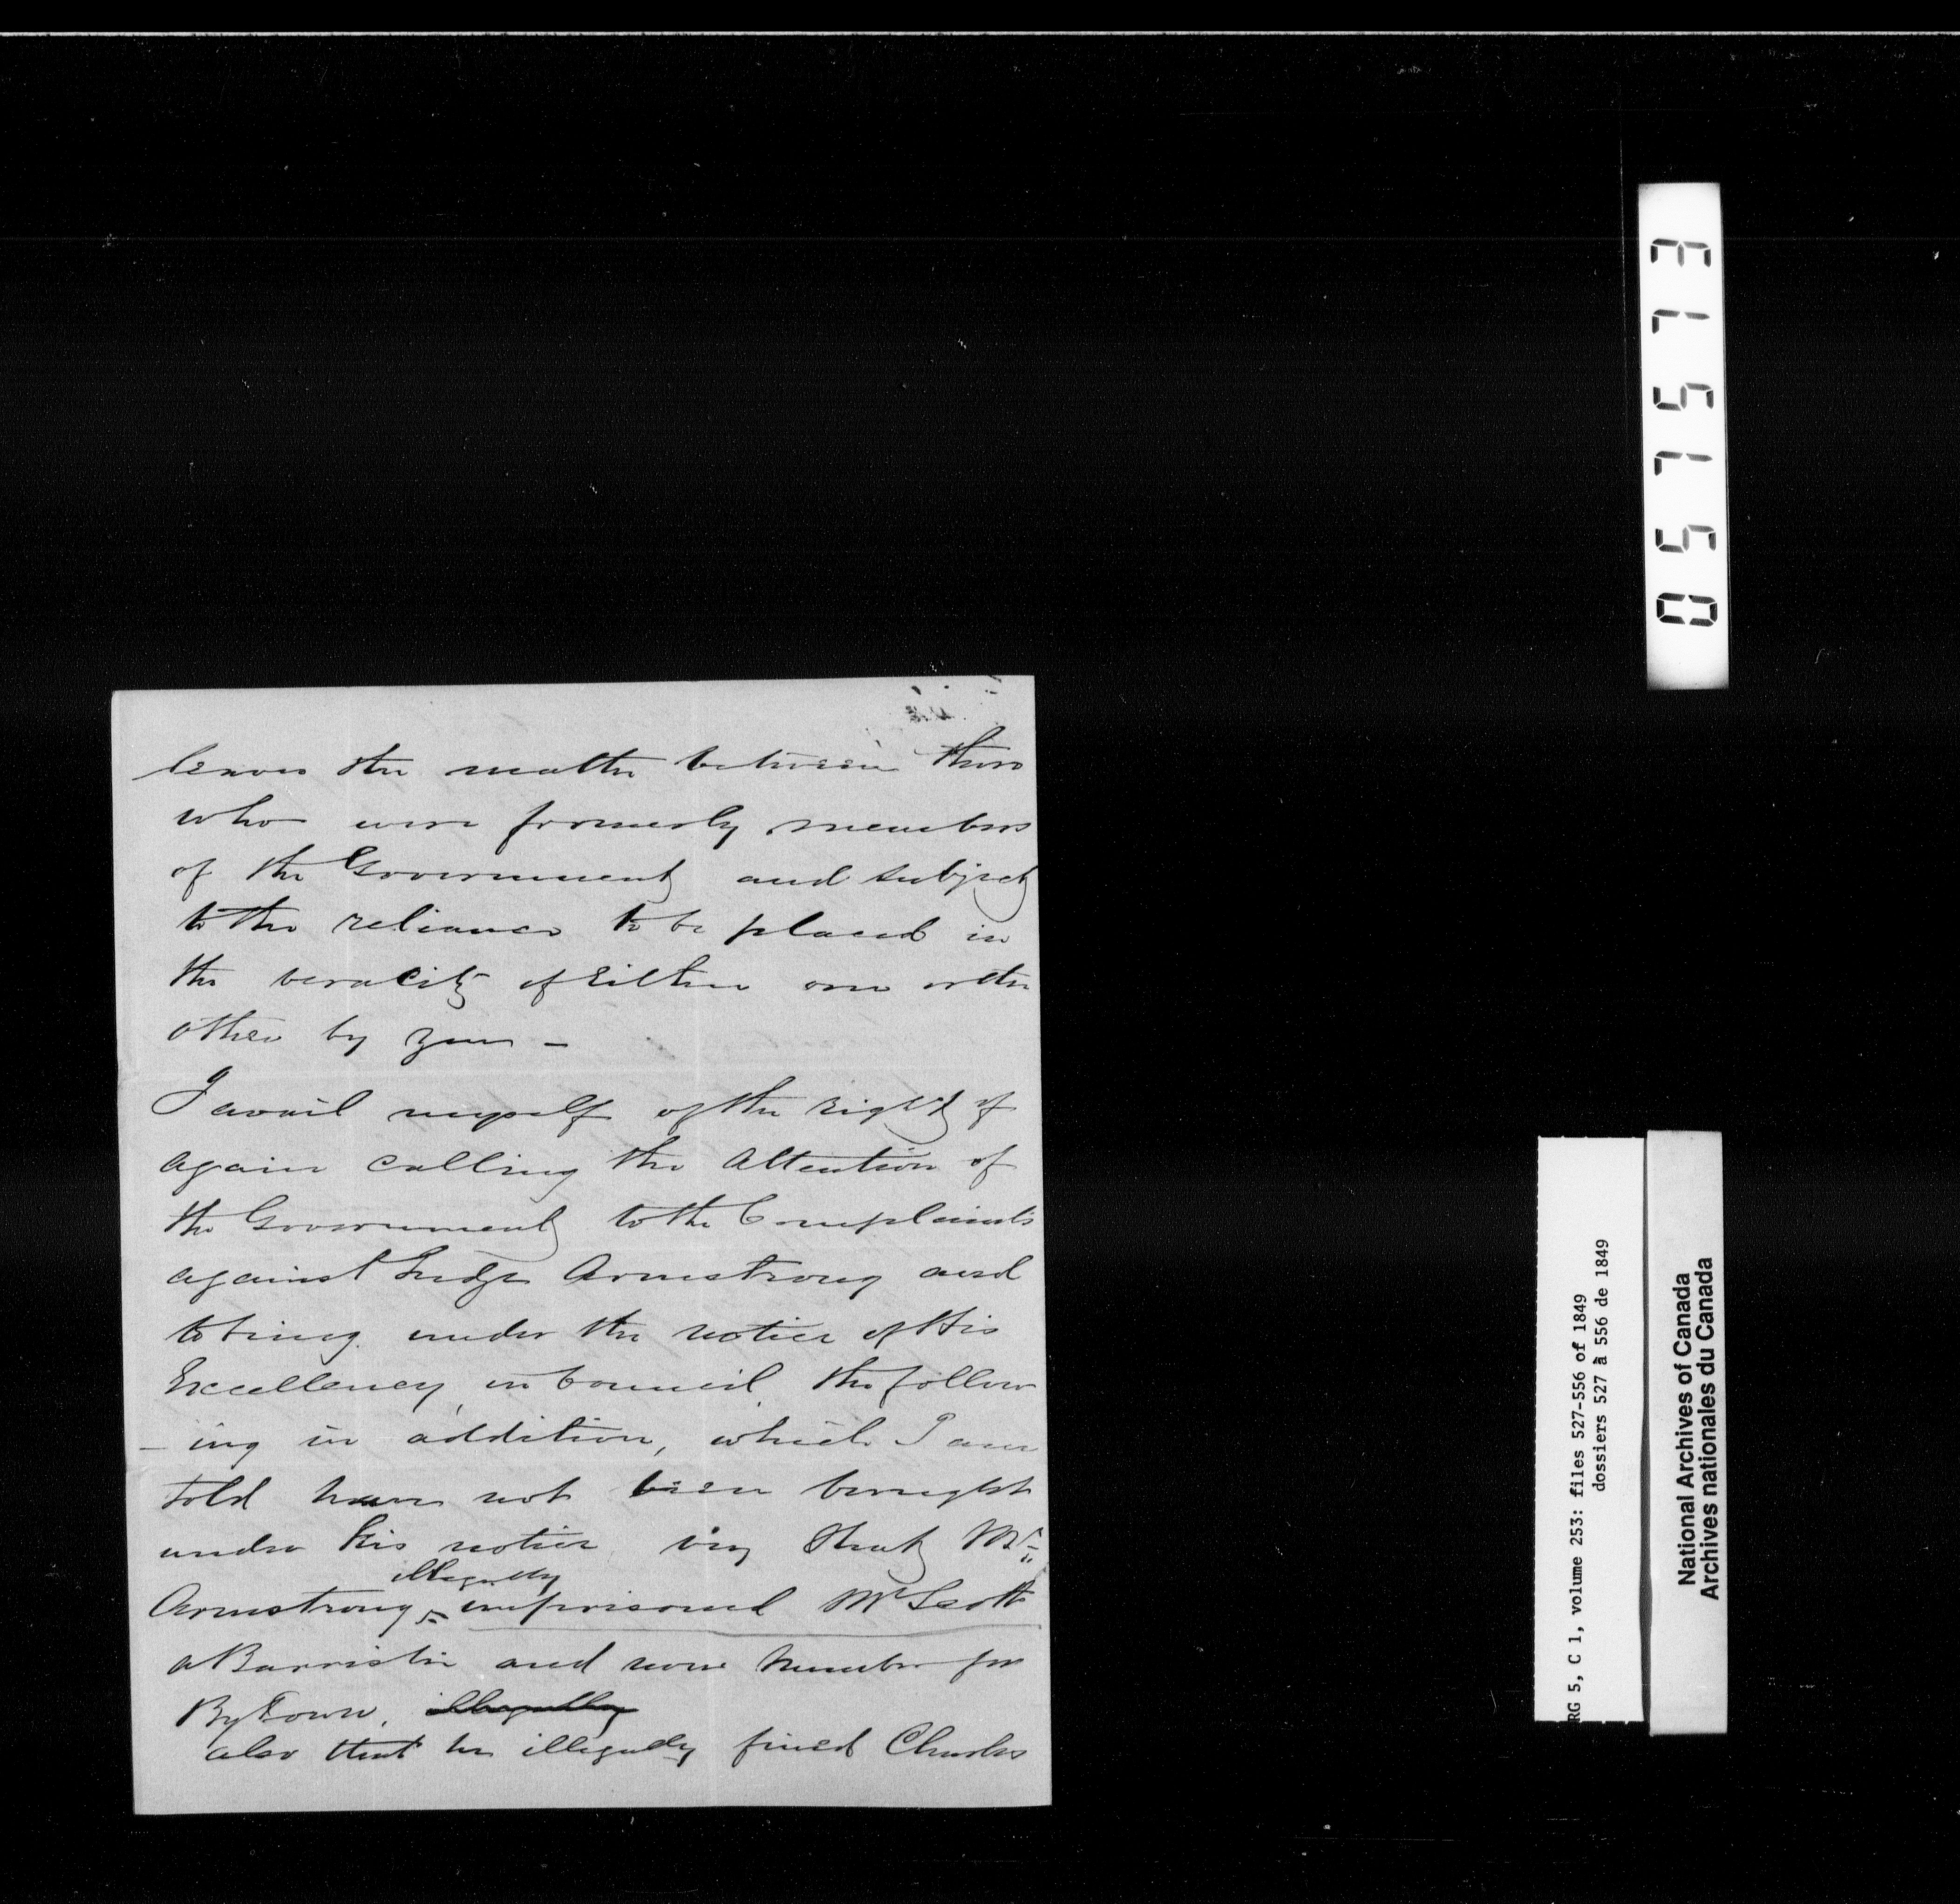 leaves the matter between those
who were formerly members
of the Government and subject
to the reliance to be placed in
the veracity of either one or the
other by you -
I avail myself of the right of
again calling the attention of
the Government to the Complaints
against Judge Armstrong and
to bring under the notice of His
Excellency in Council the follow
- ing in addition, which I am
told have not been brought
under his notice viz that Mr
illegally
Armstrong imprisoned Mr Scott
a Barrister and now Member for
Bytown, illegally
also that he illegally fined Charles
051513
RG 5, C 1, volume 253: files 527-556 of 1849
dossiers 527 à 556 de 1849
National Archives of Canada
Archives nationales du Canada